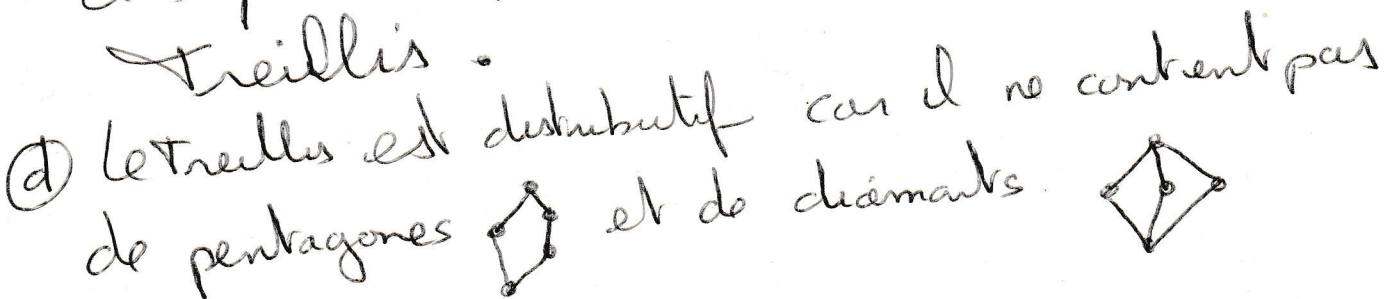 Treillis.
d Le Treillis est distributif car il ne contient pas
de pentagones et de diamants